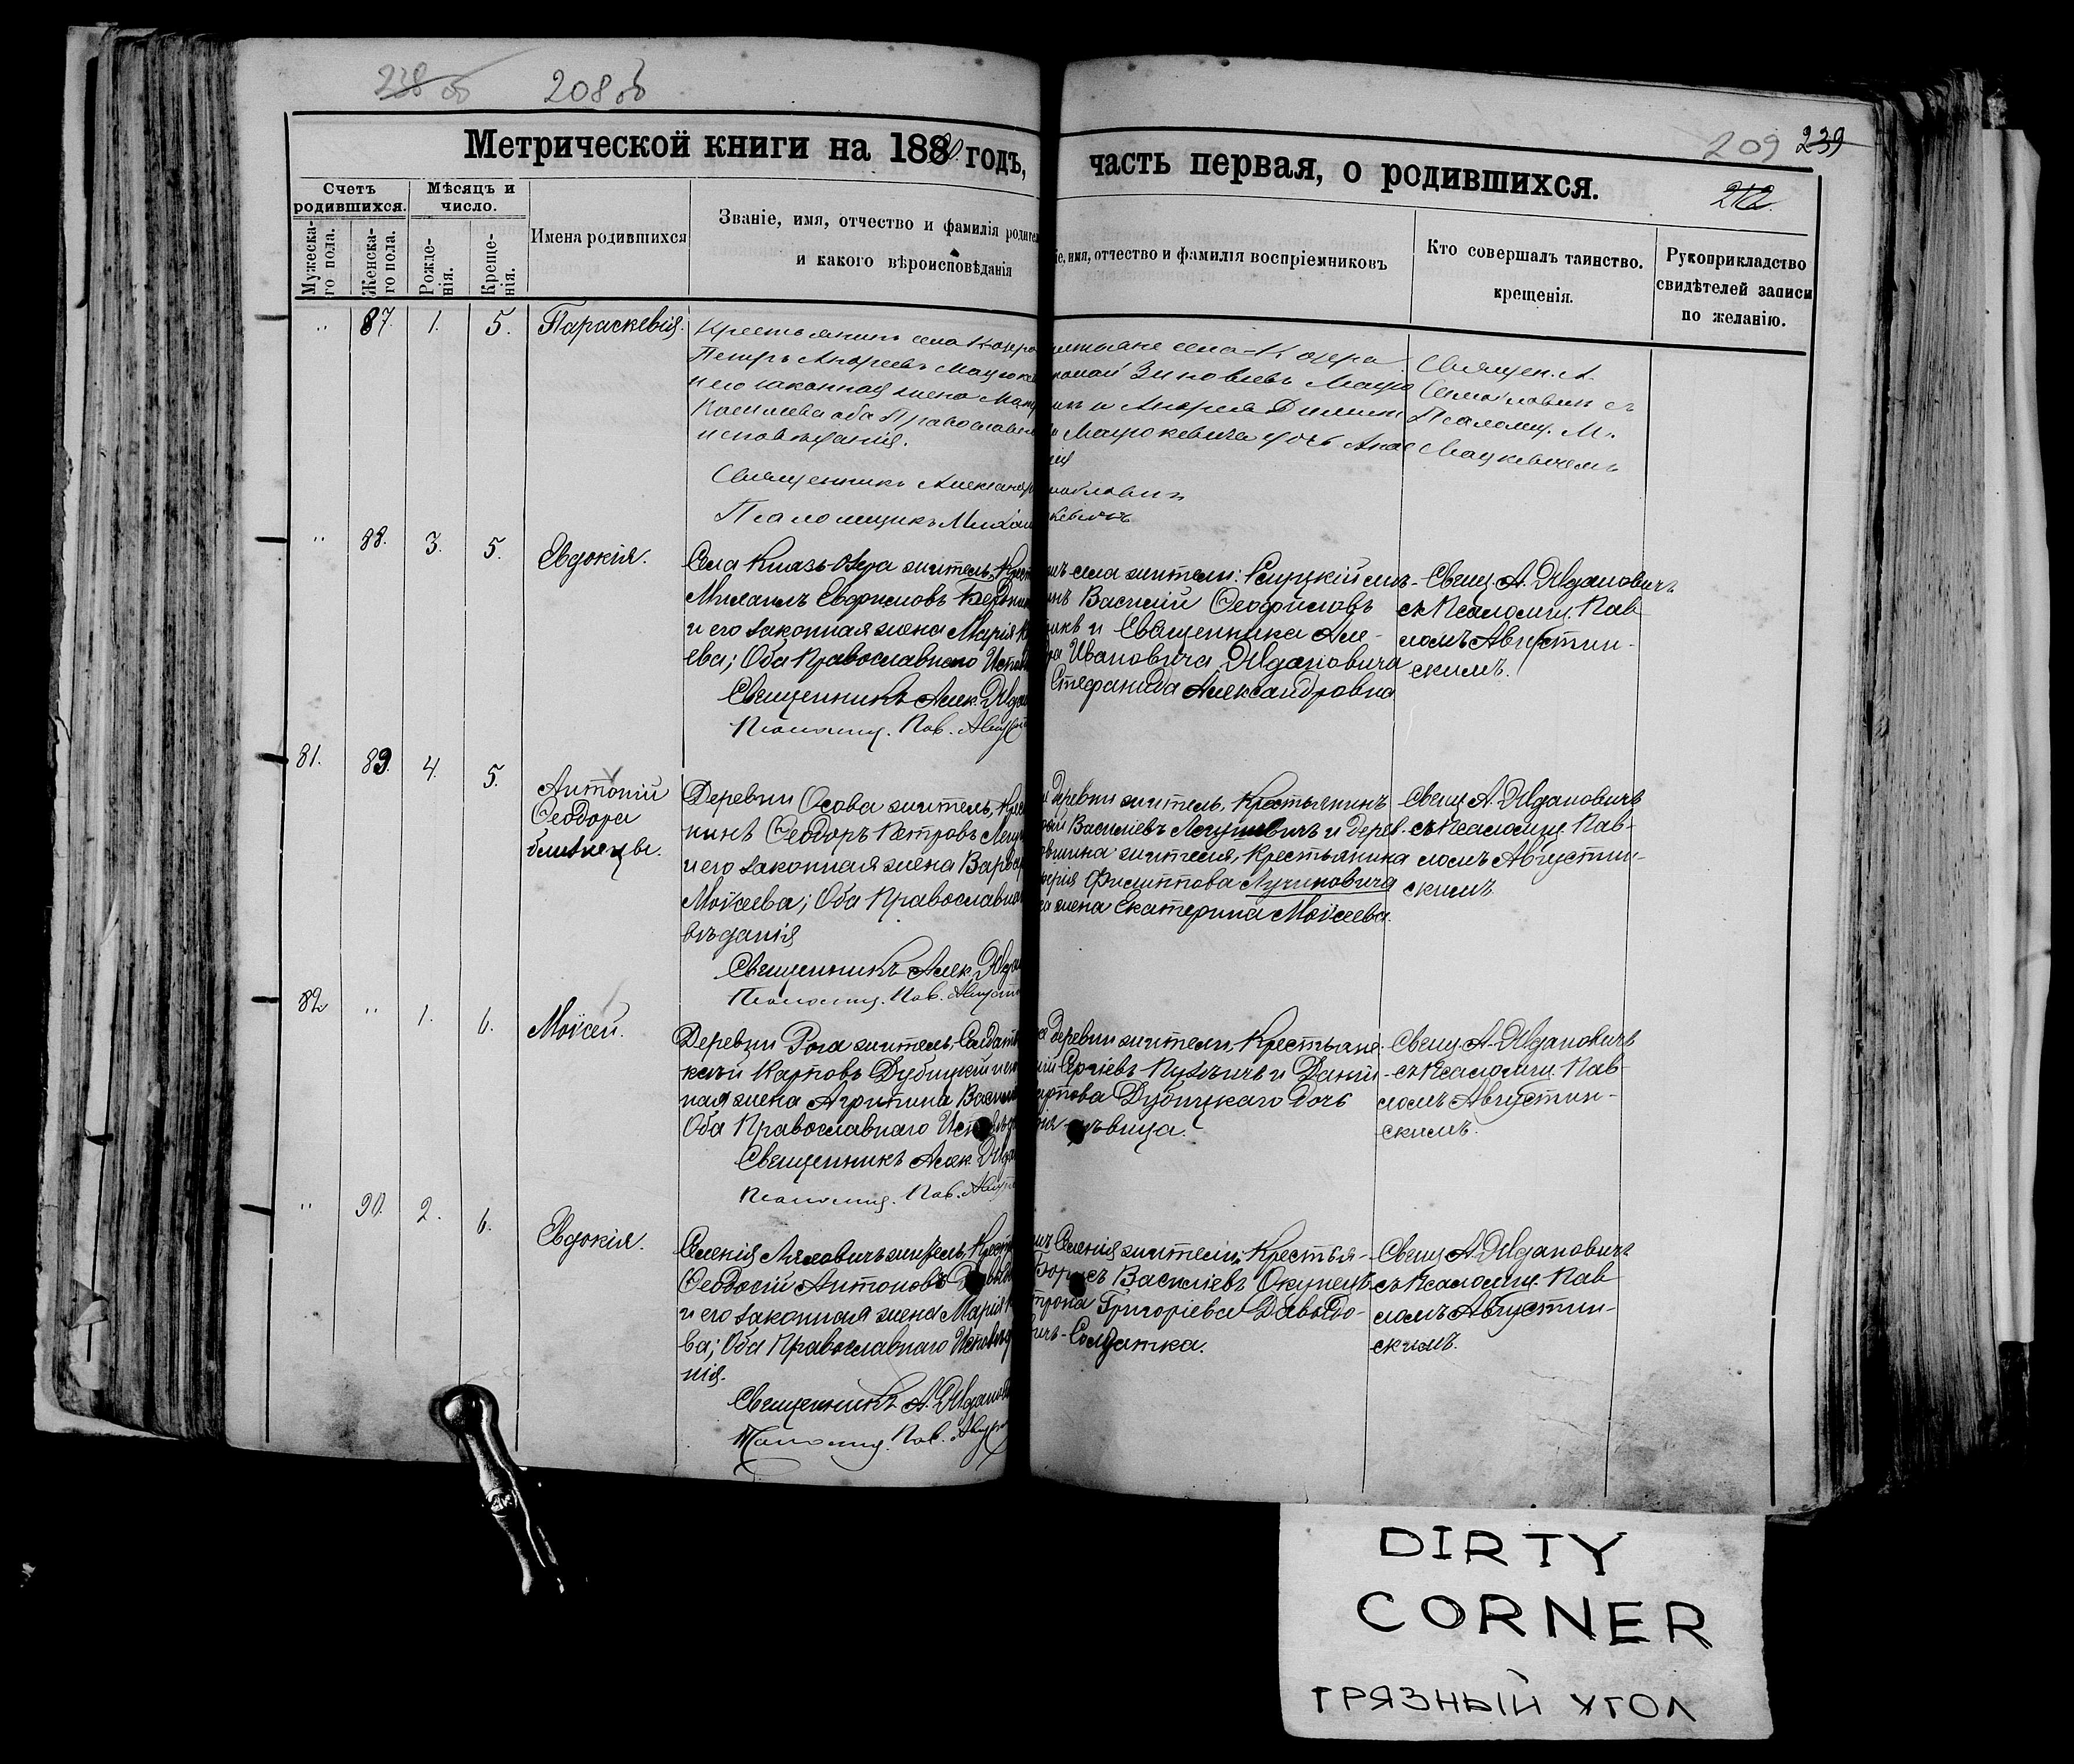 238 об 208 об
Метрической книги на 1880. годъ,
часть первая, о родившихся.
209 239
212.
Счетъ родившихся.
Мѣсяцъ и число.
Мужеска-го пола.
Женска-го пола.
Рожде-нія.
Креще-нія.
Имена родившихся
Званіе, имя, отчество и фамилія родите
и какого вѣроисповѣданія
іе, имя, отчество и фамилія воспріемниковъ
Кто совершалъ таинство.
крещенія.
Рукоприкладство
свидѣтелей записи
по желанію.
" 87. 1. 5. Параскевія.
Крестьянинъ села К-озера
Петръ Андреевъ Мацукев
и его законная жена
Васильева оба Православн
исповѣданія.
Священникъ Александр
Псаломщикъ Михаи
села К-озера
Зиновіевъ
и Андрея
Мацукевича дочь Анас
ія
кевичъ
Священ. А.
съ
Псаломщ. М.
Мацкевичемъ
" 88. 3. 5. Евдокія.
Села Князь-Озера житель, Крест
Михаилъ Евфимовъ
и его законная жена Марія
ева; Оба Православнаго Испов
Священникъ Алек. Ждан
Псаломщ. Пав. Авгус
села жители: Слуцкій
Василій Феофиловъ
и Священника Але-
ра Ивановича Ждановича
Стефанида Александровна
Свящ. А. Ждановичъ
съ Псаломщ. Пав-
ломъ Августин-
скимъ.
81. 89. 4. 5. Антоній
Феодора
близнецы.
Деревни Осова житель, Кре
нинъ Феодоръ Петровъ
и его законная жена Варвар
Моисеева; Оба Православна
вѣданія
Священникъ Алек. Ждан
Псаломщ. Пав. Августи
деревни житель, Крестьянинъ
Василіевъ и дерев-
житель, Крестьянина
Филиппова Лучиновича
жена Екатерина Моисеева.
Свящ. А. Ждановичъ
съ Псаломщ. Пав-
ломъ Августин-
скимъ.
82. " 1. 6. Моисей.
Деревни Рога житель, Солдат
Карповъ Дубицкій и его
ная жена Агрипина Васил
Оба Православнаго Исповѣд
Священникъ Алек. Ждан
Псаломщ. Пав. Август
деревни жители, Крестьяне:
Сергіевъ и Даніи-
Карпова Дубицкаго дочь
дѣвица.
Свящ. А. Ждановичъ
съ Псаломщ. Пав-
ломъ Августин-
скимъ.
" 90. 2. 6. Евдокія.
Селенія Ляховичъ житель, Крест
Феодосій Антоновъ Давыд
и его законная жена Марія
ва; Оба Православнаго Исповѣда
нія.
Священникъ А. Жданов
Псаломщ. Пав. Август
Селенія жители: Крестья-
Борисъ Василіевъ Окунецъ
Григоріева Давыдо-
вичъ - Солдатка.
Свящ. А. Ждановичъ
съ Псаломщ. Пав-
ломъ Августин-
скимъ.
DIRTY
CORNER
ГРЯЗНЫЙ УГОЛ